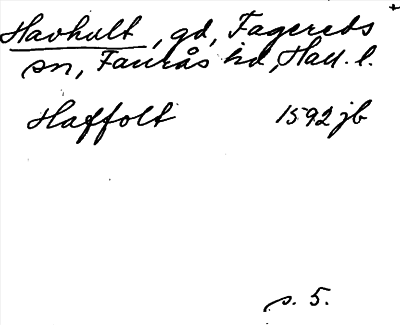 Havhult, gd, Fagereds +
sn, Faurås hd, Hall. l.
Haffolt 1592 jb
s. 5.